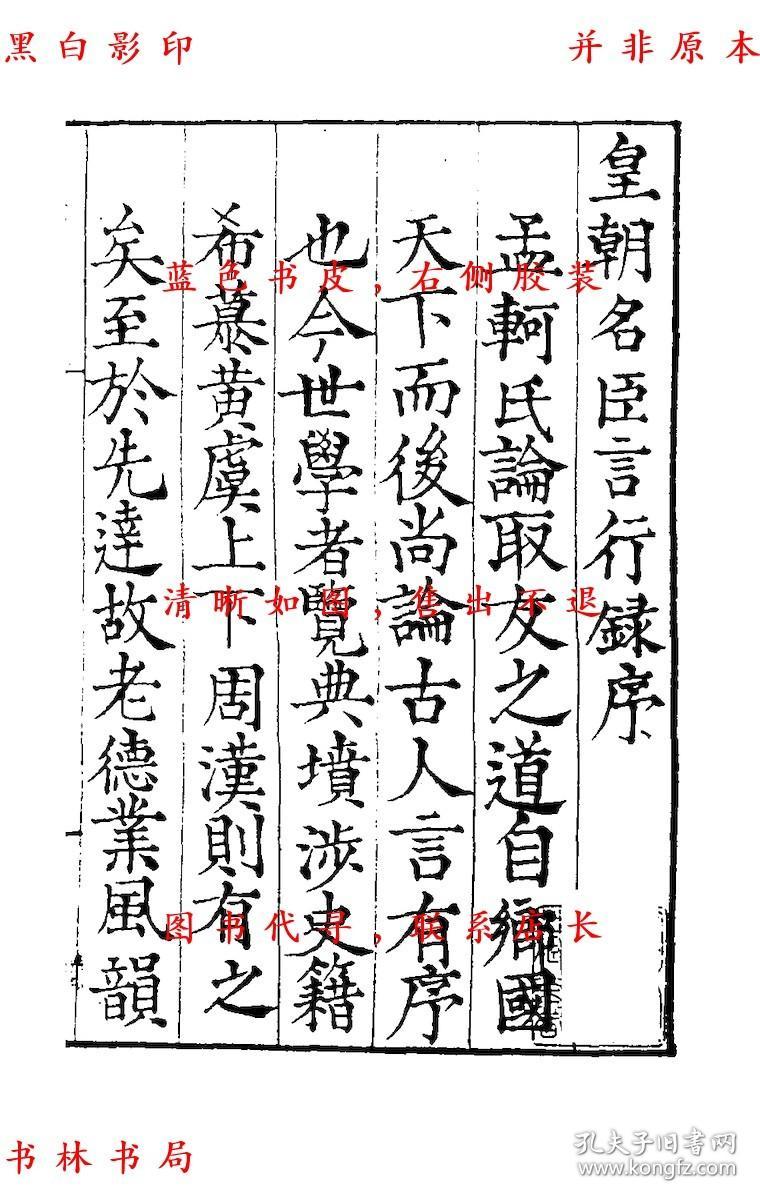 黑白影印
并非原本
皇朝名臣言行録序
孟軻氏論取友之道自鄉國
天下而後尚論古人言有序
也今世學者覽典墳涉史籍
希慕黄虞上下周漢則有之
矣至於先達故老德業風韻
蓝色书皮，右侧胶装
清晰如图，售出不退
图书代寻，联系店长
书林书局
孔夫子旧书网
www.kongfz.com